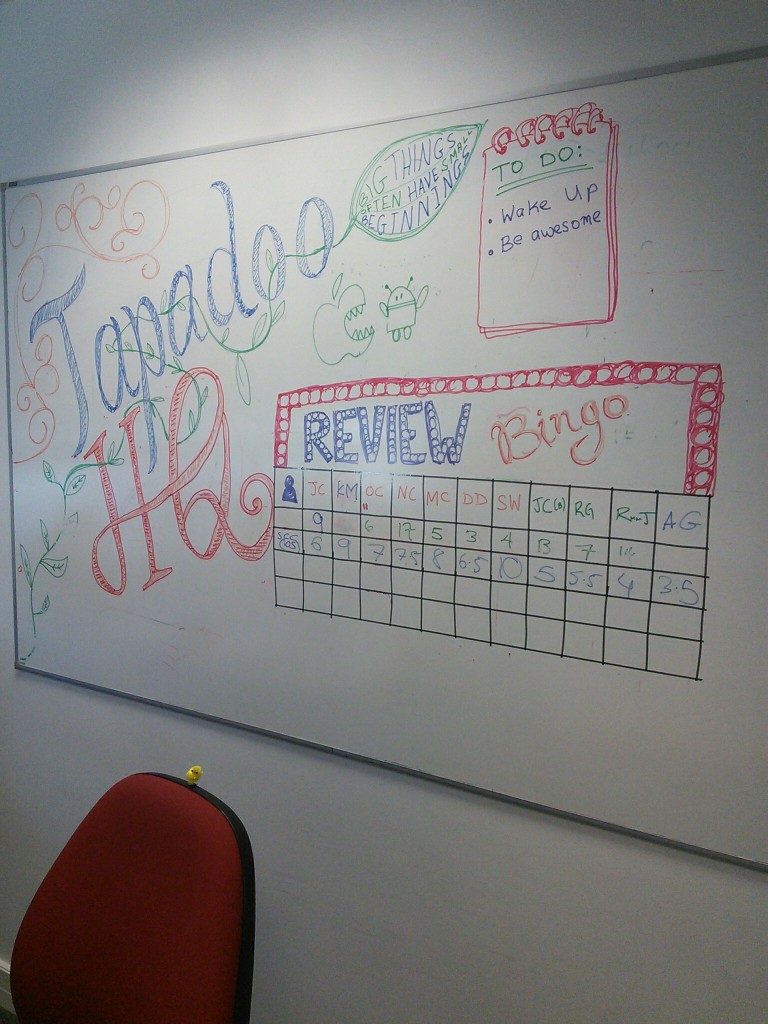 Tapadoo
HQ
BIG THINGS
OFTEN HAVE SMALL
BEGINNINGS
TO DO:
• Wake Up
• Be awesome
REVIEW Bingo
JC KM OC NC MC DD SW JC(B) RG AG
9 6 17 5 3 4 13 7
6 9 7 7.5 8 6.5 10 5 5.5 4 3.5